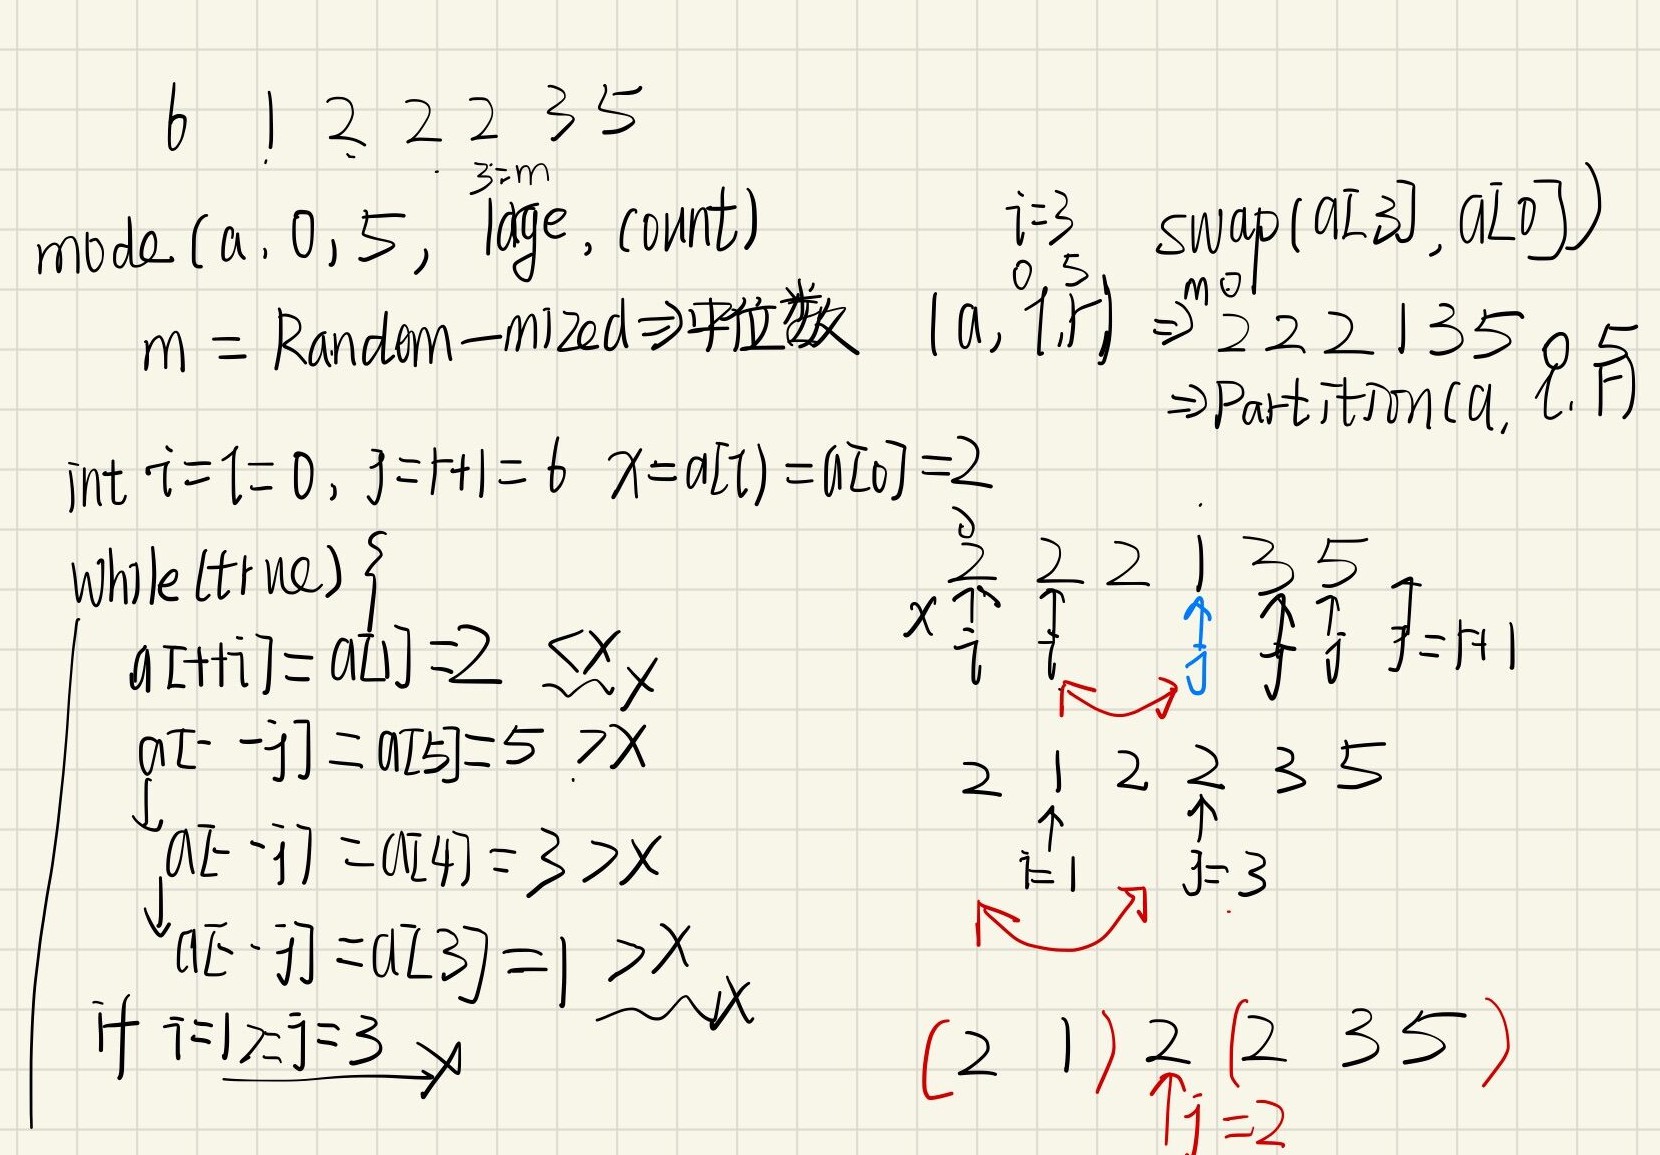 6 1 2 2 2 3 5
3=m
mode(a, 0, 5, large, count)
m = Random-mized⇒平位数 (a, l, r)
0 5
i=3
swap(a[3], a[0])
m 0
⇒ 2 2 2 1 3 5
0 5
⇒Partition(a, l, r)
int i=l=0, j=r+1=6 x=a[l]=a[0]=2
while(true){
a[++i]=a[1]=2 <x x
a[--j]=a[5]=5 >x
↓a[--j]=a[4]=3>x
↓a[--j]=a[3]=1 >x x
if i=1>=j=3 x
0
2 2 2 1 3 5
x i i j j j j=r+1
2 1 2 2 3 5
i=1 j=3
(2 1) 2 (2 3 5)
j=2